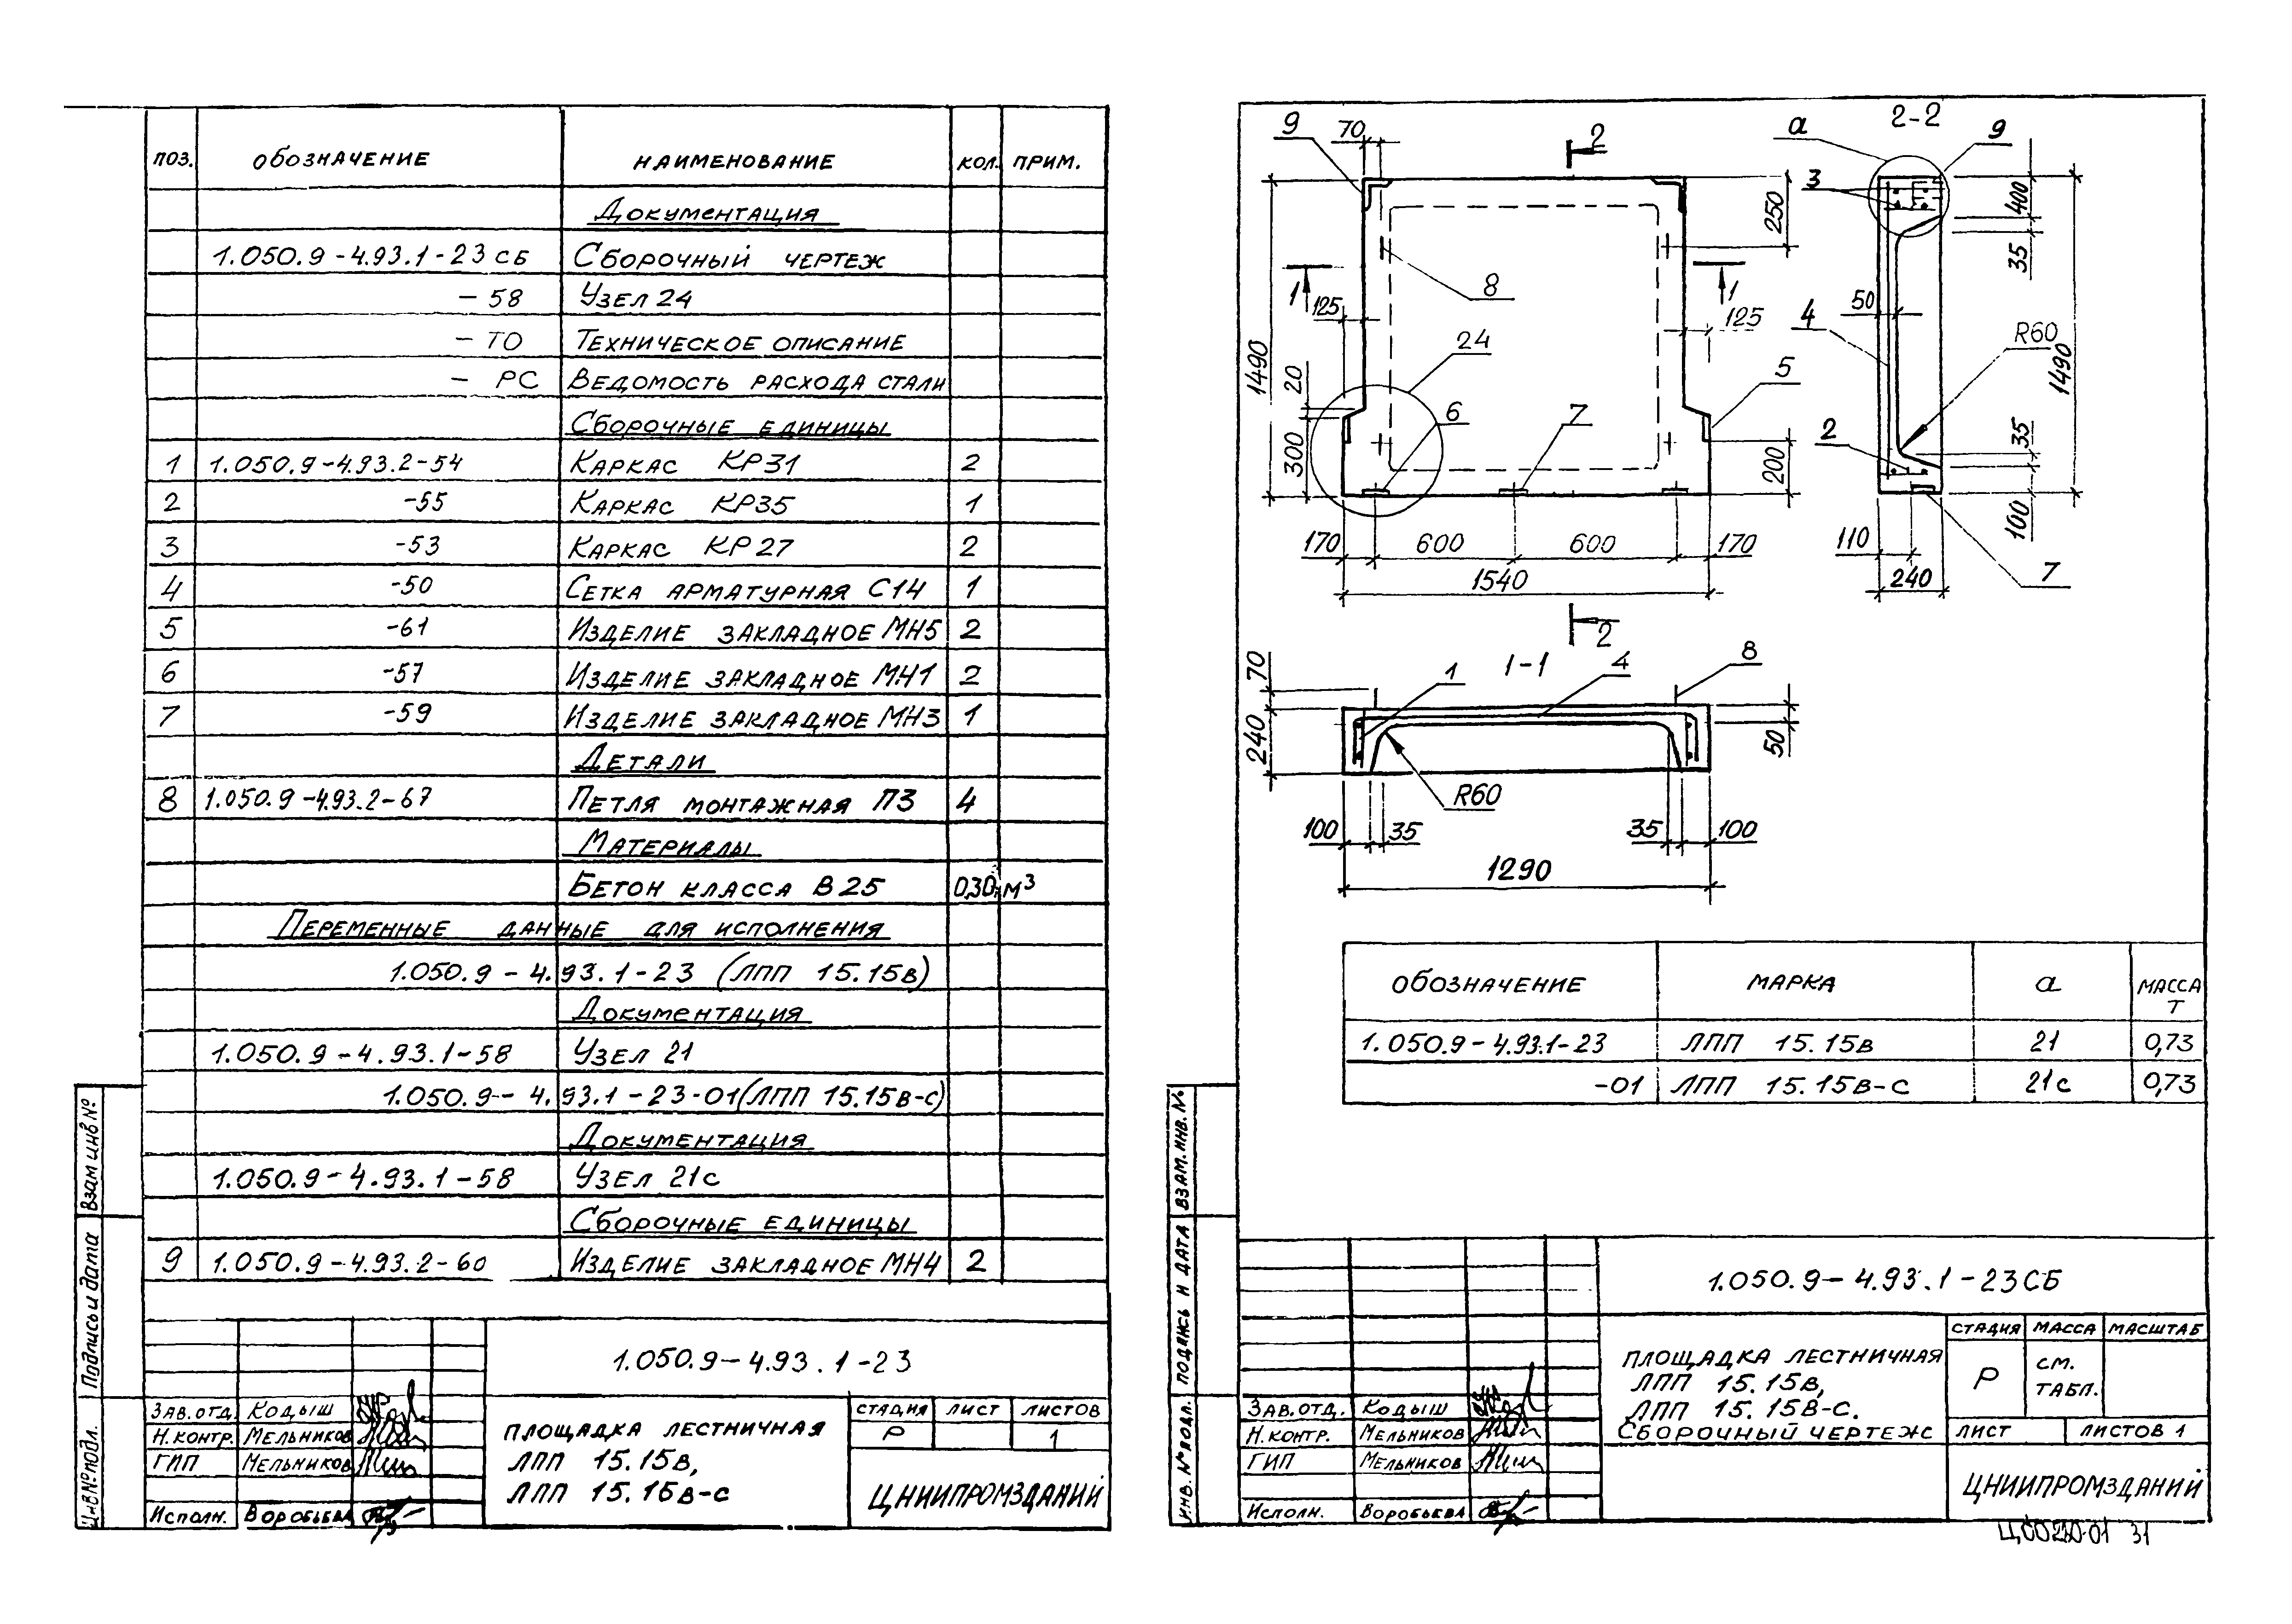 ПОЗ. ОБОЗНАЧЕНИЕ НАИМЕНОВАНИЕ КОЛ. ПРИМ.
Документация
1.050.9-4.93.1-23 СБ Сборочный чертеж
-58 Узел 24
-ТО Техническое описание
- РС Ведомость расхода стали
Сборочные единицы
1 1.050.9-4.93.2-54 Каркас КР31 2
2 -55 Каркас КР35 1
3 -53 Каркас КР27 2
4 -50 Сетка арматурная С14 1
5 -61 Изделие закладное МН5 2
6 -57 Изделие закладное МН1 2
7 -59 Изделие закладное МН3 1
Детали
8 1.050.9-4.93.2-67 Петля монтажная П3 4
Материалы
Бетон класса В25 0,30 м³
Переменные данные для исполнения
1.050.9-4.93.1-23 (ЛПП 15.15в)
Документация
1.050.9-4.93.1-58 Узел 21
1.050.9-4.93.1-23-01 (ЛПП 15.15в-с)
Документация
1.050.9-4.93.1-58 Узел 21с
Сборочные единицы
9 1.050.9-4.93.2-60 Изделие закладное МН4 2
Взам инв №
Подпись и дата
Инв № подл.
1.050.9-4.93.1-23
Зав. отд. Кодыш
Н. контр. Мельников
ГИП Мельников
Исполн. Воробьева
ПЛОЩАДКА ЛЕСТНИЧНАЯ
ЛПП 15.15в,
ЛПП 15.15в-с
СТАДИЯ ЛИСТ ЛИСТОВ
Р 1
ЦНИИПРОМЗДАНИЙ
9 70 2
1490
250
1 125
8
1 125
24
20
300
6 7 5
200
170 600 600 170
1540
2
2-2
а 9
3
400
35
50
4
R60
1490
2
35
100
110
240 7
1-1
70
240
1 4 8
50
R60
100 35 35 100
1290
ОБОЗНАЧЕНИЕ МАРКА а МАССА Т
1.050.9-4.93.1-23 ЛПП 15.15в 21 0,73
-01 ЛПП 15.15в-с 21с 0,73
ВЗАМ. ИНВ. №
ПОДПИСЬ И ДАТА
ИНВ. № ПОДЛ.
1.050.9-4.93.1-23СБ
Зав. отд. Кодыш
Н. контр. Мельников
ГИП Мельников
Исполн. Воробьева
ПЛОЩАДКА ЛЕСТНИЧНАЯ
ЛПП 15.15в,
ЛПП 15.15в-с.
СБОРОЧНЫЙ ЧЕРТЕЖ
СТАДИЯ МАССА МАСШТАБ
Р СМ. ТАБЛ.
ЛИСТ ЛИСТОВ 1
ЦНИИПРОМЗДАНИЙ
Ц00230-01 31